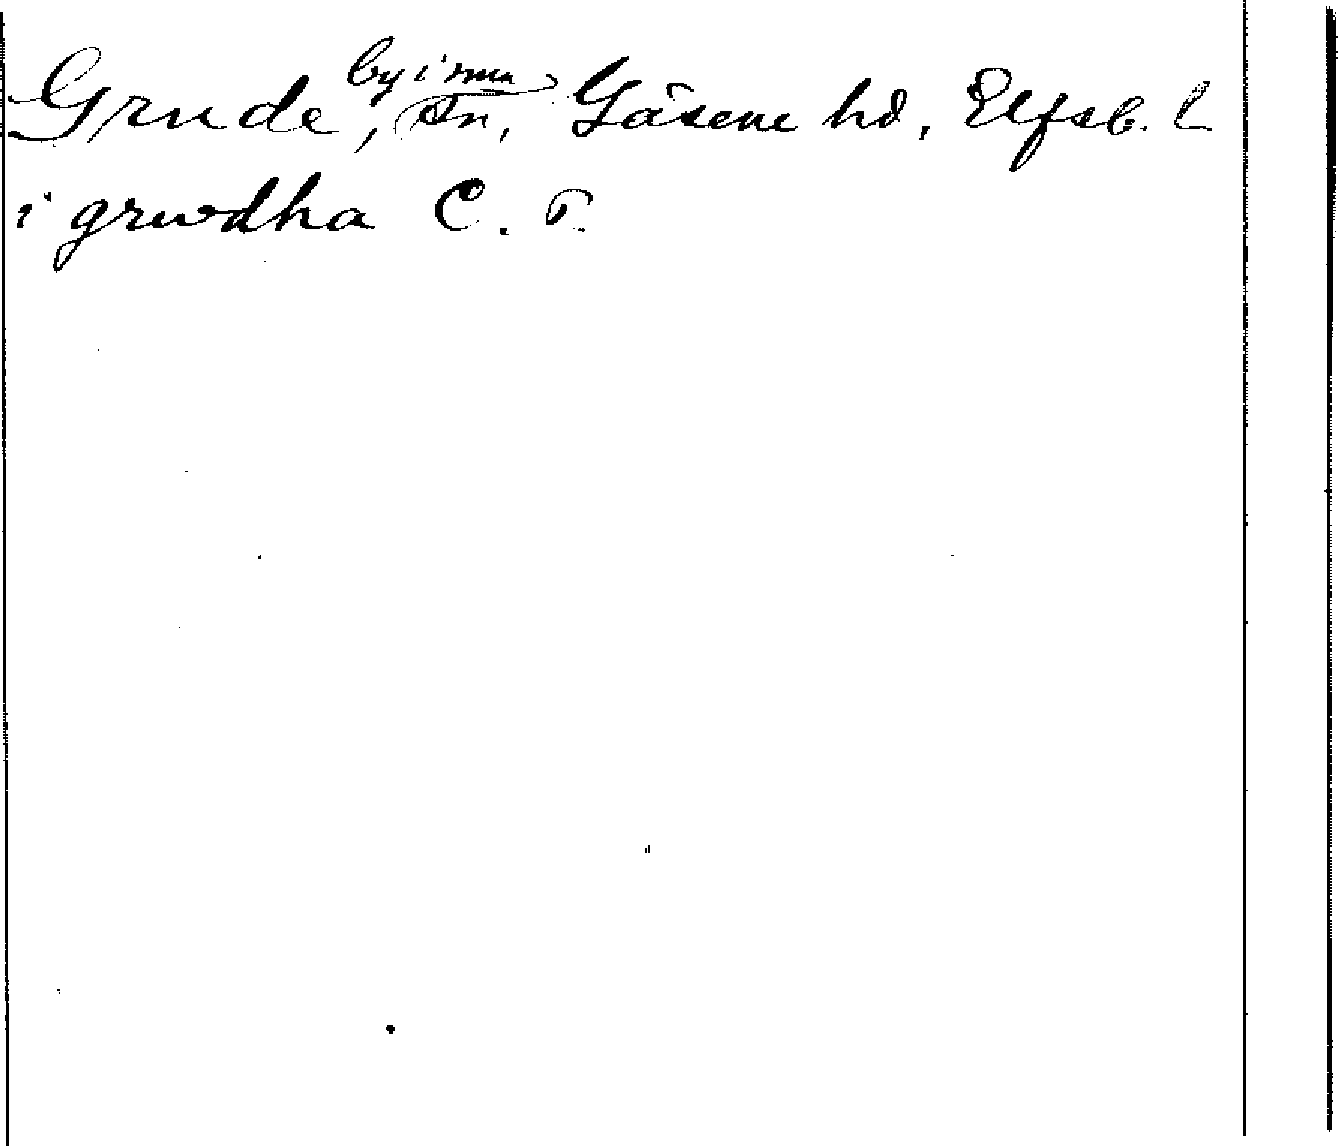 Grude, by i snn (Sn), Gäsene hd, Elfsb. l
i grwdha C. T.